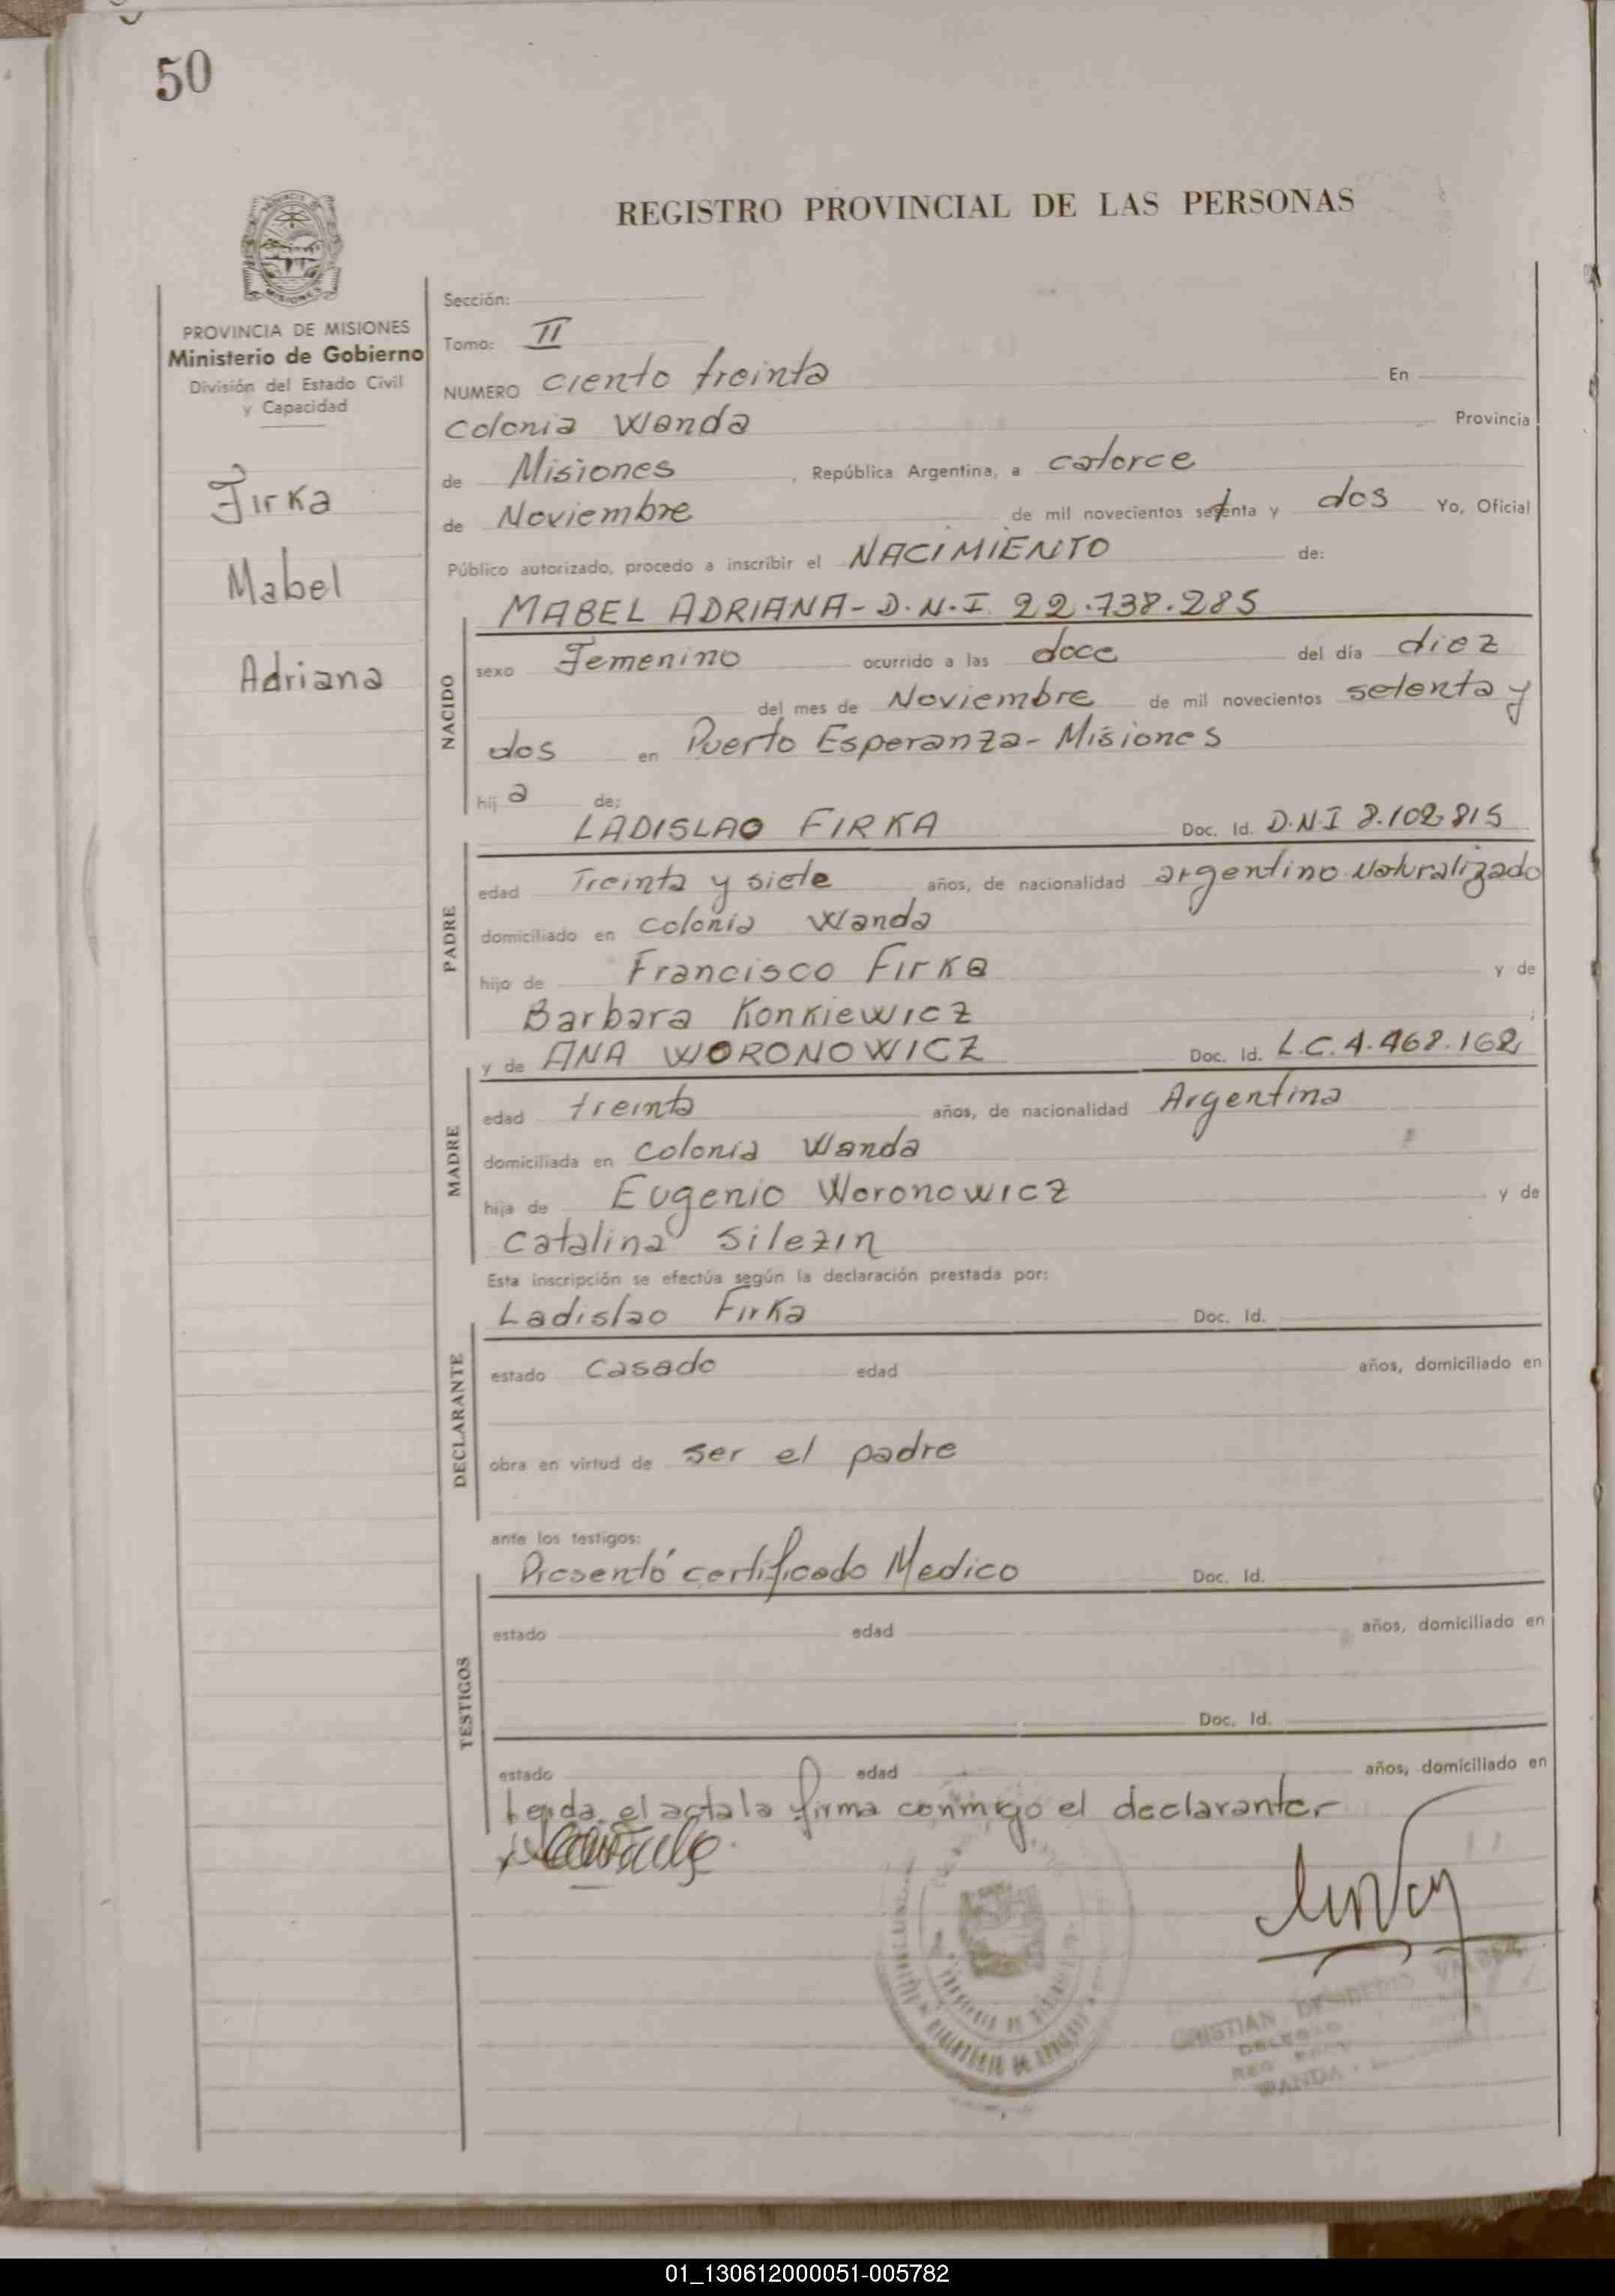 50
REGISTRO PROVINCIAL DE LAS PERSONAS
PROVINCIA DE MISIONES
Ministerio de Gobierno
División del Estado Civil
y Capacidad
Firka
Mabel
Adriana
Sección:
Tomo: II
NUMERO ciento treinta En
Colonia Wanda Provincia
de Misiones, República Argentina, a catorce
de Noviembre de mil novecientos setenta y dos Yo, Oficial
Público autorizado, procedo a inscribir el NACIMIENTO de:
NACIDO
MABEL ADRIANA - D.N.I. 22.738.285
sexo Femenino ocurrido a las doce del día diez
del mes de Noviembre de mil novecientos setenta y
dos en Puerto Esperanza - Misiones
hij a de:
PADRE
LADISLAO FIRKA Doc. Id. D.N.I 8.102.815
edad Treinta y siete años, de nacionalidad argentino Naturalizado
domiciliado en Colonia Wanda
hijo de Francisco Firka y de
Barbara Konkiewicz;
MADRE
y de ANA WORONOWICZ Doc. Id. L.C. 4.468.162
edad treinta años, de nacionalidad Argentina
domiciliada en Colonia Wanda
hija de Eugenio Woronowicz y de
Catalina Silezin
Esta inscripción se efectúa según la declaración prestada por:
DECLARANTE
Ladislao Firka Doc. Id.
estado casado edad años, domiciliado en
obra en virtud de ser el padre
ante los testigos:
TESTIGOS
Presentó certificado Medico Doc. Id.
estado edad años, domiciliado en
Doc. Id.
estado edad años, domiciliado en
Leida el acta la firma conmigo el declarante.-
CRISTIAN
WANDA
01_130612000051-005782